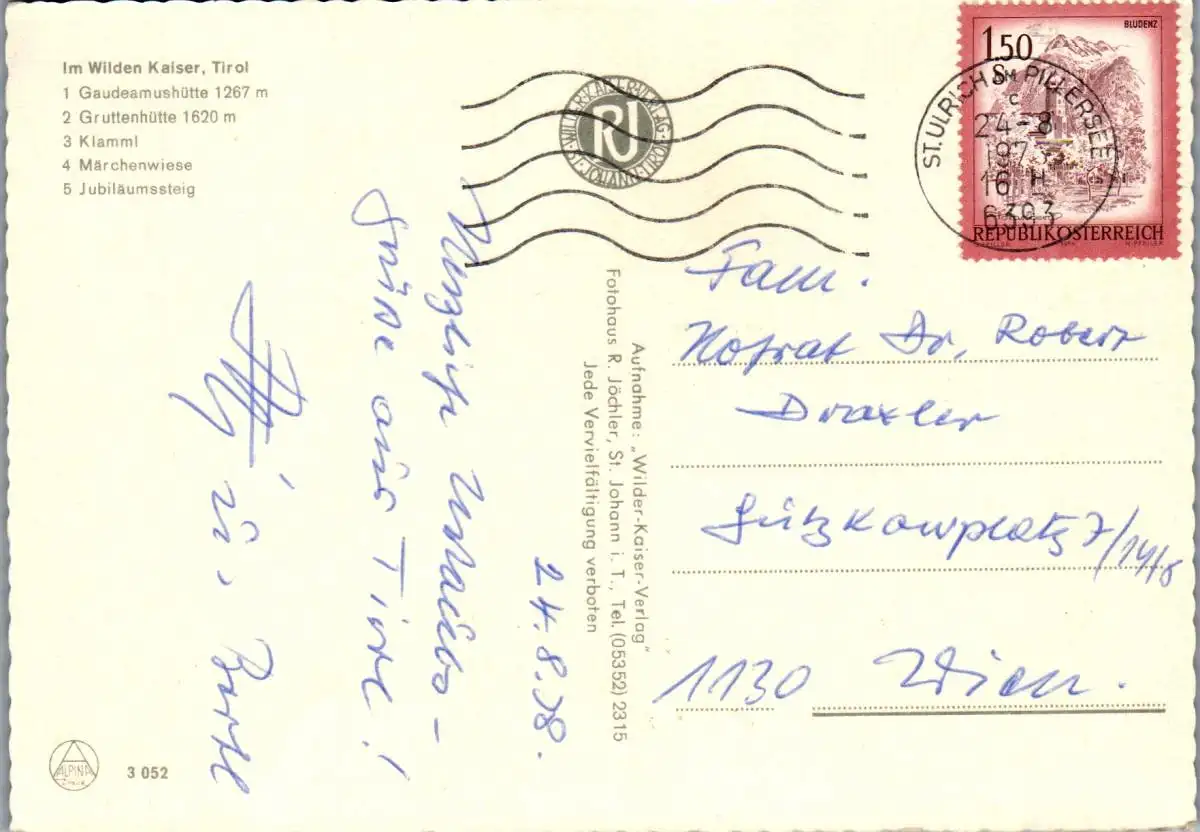 Im Wilden Kaiser, Tirol
1 Gaudeamushütte 1267 m
2 Gruttenhütte 1620 m
3 Klamml
4 Märchenwiese
5 Jubiläumssteig
WILDER-KAISER-VERLAG
ST. JOHANN-TIROL
RJ
BLUDENZ
1,50
S
REPUBLIK ÖSTERREICH
ST. ULRICH AM PILLERSEE
C
24-8
197
16 H
6393
24.8.78.
Herzliche Urlaubs-
grüße aus Tirol!
Aufnahme: „Wilder-Kaiser-Verlag"
Fotohaus R. Jöchler, St. Johann i. T., Tel. (05352) 2315
Jede Vervielfältigung verboten
Fam.
Hofrat Dr. Robert
Draxler
7/14/8
1130 Wien.
ALPINA
3 052